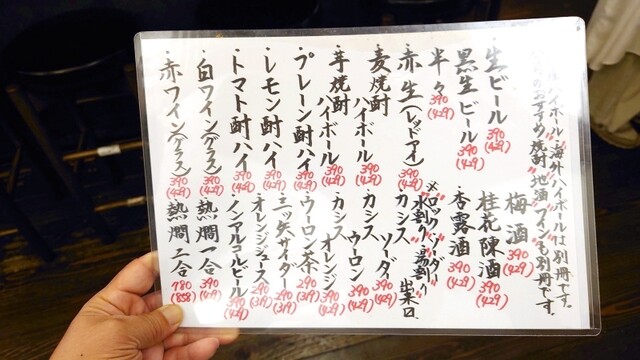 ハイボール、海外ハイボールは別冊です。
おすすめ焼酎、地酒、ワインも別冊です。
・生ビール 390 (429)
・黒生ビール 390 (429)
・半々 390 (429)
・赤生(レッドアイ) 390 (429)
・麦焼酎ハイボール 390 (429)
・芋焼酎ハイボール 390 (429)
・プレーン酎ハイ 390 (429)
・レモン酎ハイ 390 (429)
・トマト酎ハイ 390 (429)
・白ワイン(グラス) 390 (429)
・赤ワイン(グラス) 390 (429)
梅酒 390 (429)
桂花陳酒 390 (429)
・杏露酒 390 (429)
※ロック、ソーダ
水割り、湯割り出来□
カシスソーダ 390 (429)
カシスウーロン 390 (429)
カシスオレンジ 390 (429)
・ウーロン茶 290 (319)
・三ッ矢サイダー 290 (319)
・オレンジジュース 290 (319)
・ノンアルコールビール 390 (429)
・熱燗一合 390 (429)
・熱燗二合 780 (858)